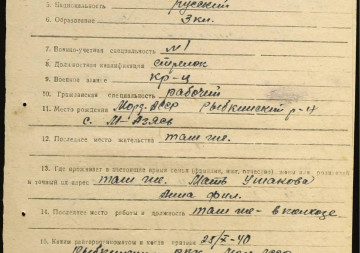 5. Национальность русский
6. Образование 3 кл.
7. Военно-учетная специальность №1
8. Должностная квалификация стрелок
9. Военное звание кр-ц
10. Гражданская специальность рабочий
11. Место рождения Морд. АССР Рыбкинский р-н
с. М-Азясь
12. Последнее место жительства там же.
13. Где проживает в настоящее время семья
и точный её адрес там же. Мать Ушакова
Анна Фил.
14. Последнее место работы и должность там же - в колхозе
15. Каким райвоенкоматом и когда призван 25/X-40
Рыбкинским РВК